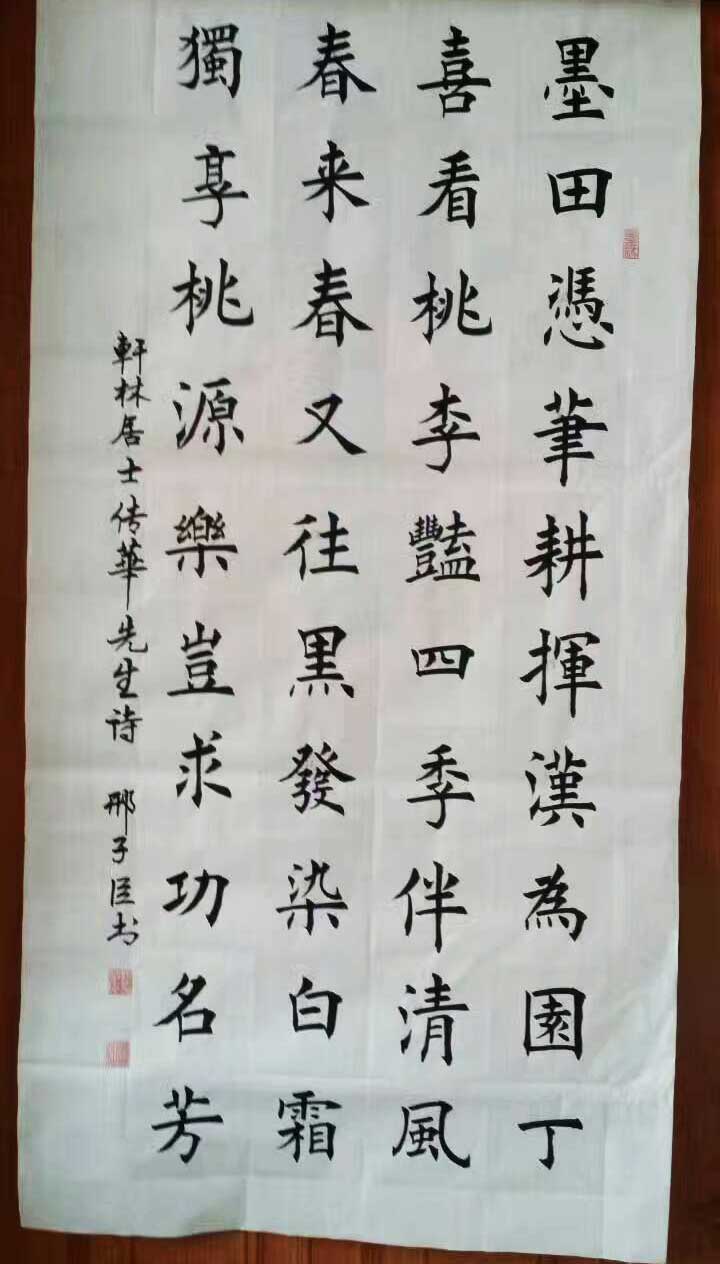 墨田憑筆耕揮漢為園丁
喜看桃李豔四季伴清風
春来春又往黑發染白霜
獨享桃源樂豈求功名芳
軒林居士传華先生诗 邢子臣书